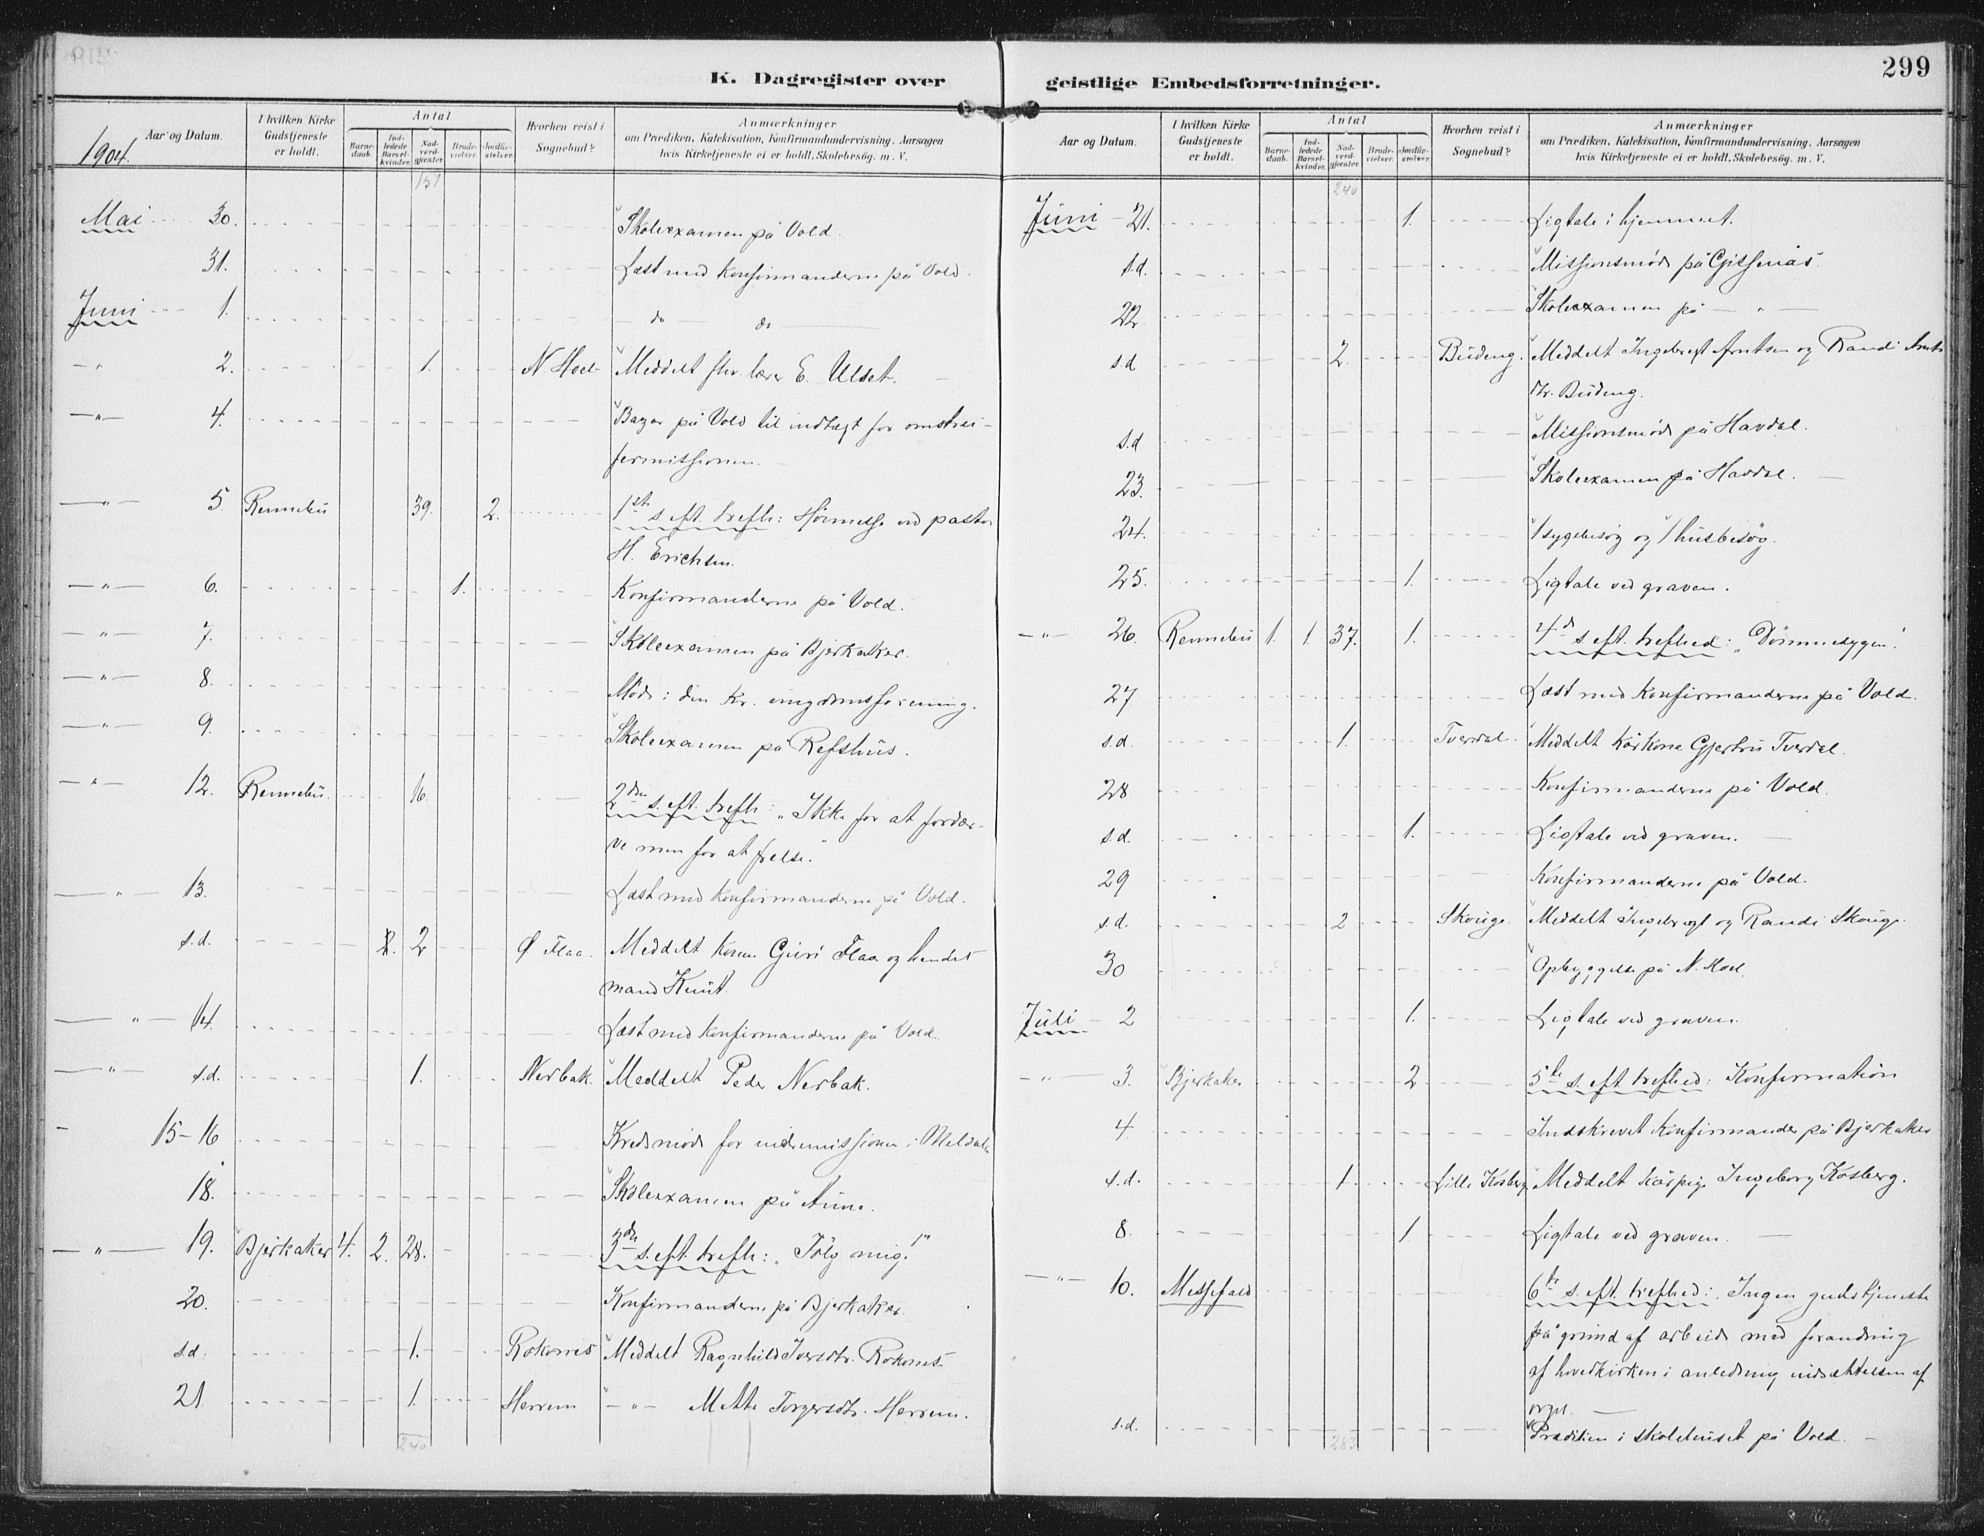 299
K. Dagregister over geistlige Embedsforretninger.
Aar og Datum. I hvilken Kirke Gudstjeneste er holdt. Antal Barne-daab. Ind-ledede Barsel-kvinder. Nad-verd-gjester. Brude-vielser. Jordfæ-stelser. Hvorhen reist i Sognebud? Anmærkninger
om Prædiken, Katekisation, Konfirmandundervisning. Aarsagen
hvis Kirketjeneste ei er holdt. Skolebesøg. m. V.
1904.
151
Mai 30. Skoleexamen på Vold.
31. Læst med konfirmanderne på Vold.
Juni 1. do do
" 2. 1. N Hoel Meddelt fhv. lærer E. Ulset.
" 4. Bazar på Vold til indtægt for
" 5. Rennebu 39. 2. 1st s. eft. trefh: Høimesse ved pastor
H. Erichsen.
" 6. 1. Konfirmanderne på Vold.
" 7. Skoleexamen på Bjerkaker.
" 8. Møde i den kr. ungdomsforening.
" 9. Skoleexamen på Refshus.
" 12. Rennebu. 16. 2den s. eft. trefh: "Ikke for at fordær-
ve men for at frelse."
" 13. Læst med konfirmanderne på Vold.
s.d. 2 Ø Flaa. Meddelt kone Guri Flaa og hendes
mand Knut.
" 14. Læst med konfirmanderne på Vold.
" s.d. 1. Nerbak. Meddelt Peder Nerbak.
15-16 Kredsmøde for indremissionen i Meldalen
18. Skoleexamen på Aune.
" 19. Bjerkaker 4. 2. 28. 3die s. eft. trefh: "Følg mig!"
20. Konfirmanderne på Bjerkaker.
s.d. 1. Rokones Meddelt Ragnhild Iversdtr. Rokones
21 1. Herrem " Mette Torgersdtr. Herrem.
240
Aar og Datum. I hvilken Kirke Gudstjeneste er holdt. Antal Barne-daab. Ind-ledede Barsel-kvinder. Nad-verd-gjester. Brude-vielser. Jordfæ-stelser. Hvorhen reist i Sognebud? Anmærkninger
om Prædiken, Katekisation, Konfirmandundervisning. Aarsagen
hvis Kirketjeneste ei er holdt. Skolebesøg. m. V.
240
Juni 21. 1. Ligtale i hjemmet.
s.d. Missionsmøde på Gisnås.
22 Skoleexamen på "
s.d 2. Budeng. Meddelt Ingebrigt Arntsen og Randi Arnts
dtr. Budeng.
s.d Missionsmøde på Havdal.
23. Skoleexamen på Havdal.
24. 1 sygebesøg og 1 husbesøg.
25. 1. Ligtale ved graven.
" 26. Rennebu 1. 1. 37. 1. 4de s. eft. trefhed: "Dømmesygen".
27 Læst med konfirmanderne på Vold.
s.d. 1. Tverdal. Meddelt kårkone Gjertru Tverdal.
28 Konfirmanderne på Vold.
s.d. 1. Ligtale ved graven.
29 Konfirmanderne på Vold.
s.d. 2 Skouge. Meddelt Ingebrigt og Randi Skouge.
30 Opbyggelse på N. Hoel.
Juli 2 1. Ligtale ved graven.
" 3. Bjerkaker 2 5te s. eft. trefhed: Konfirmation
4. Indskrevet konfirmander på Bjerkaker
s.d. 1. Lille Kosberg Meddelt Ingeborg Kosberg.
8. 1 Ligtale ved graven.
" 10. Messefald 6te s. eft. trefhed: Ingen gudstjeneste
på grund af arbeide med forandring
af hovedkirken i anledning indsættelsen af
orgel.
s.d. Prædiken i skolehuset på Vold.
283